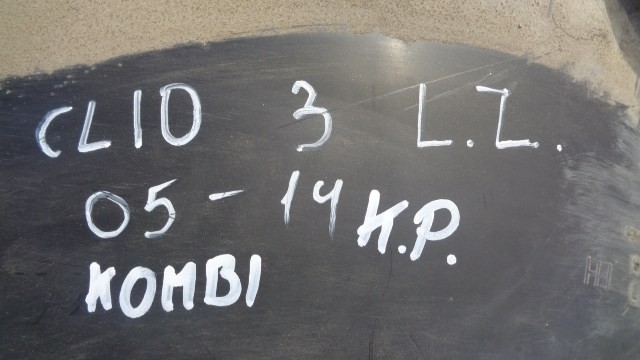 CLIO 3 L.Z.
05-14 K.P.
KOMBI